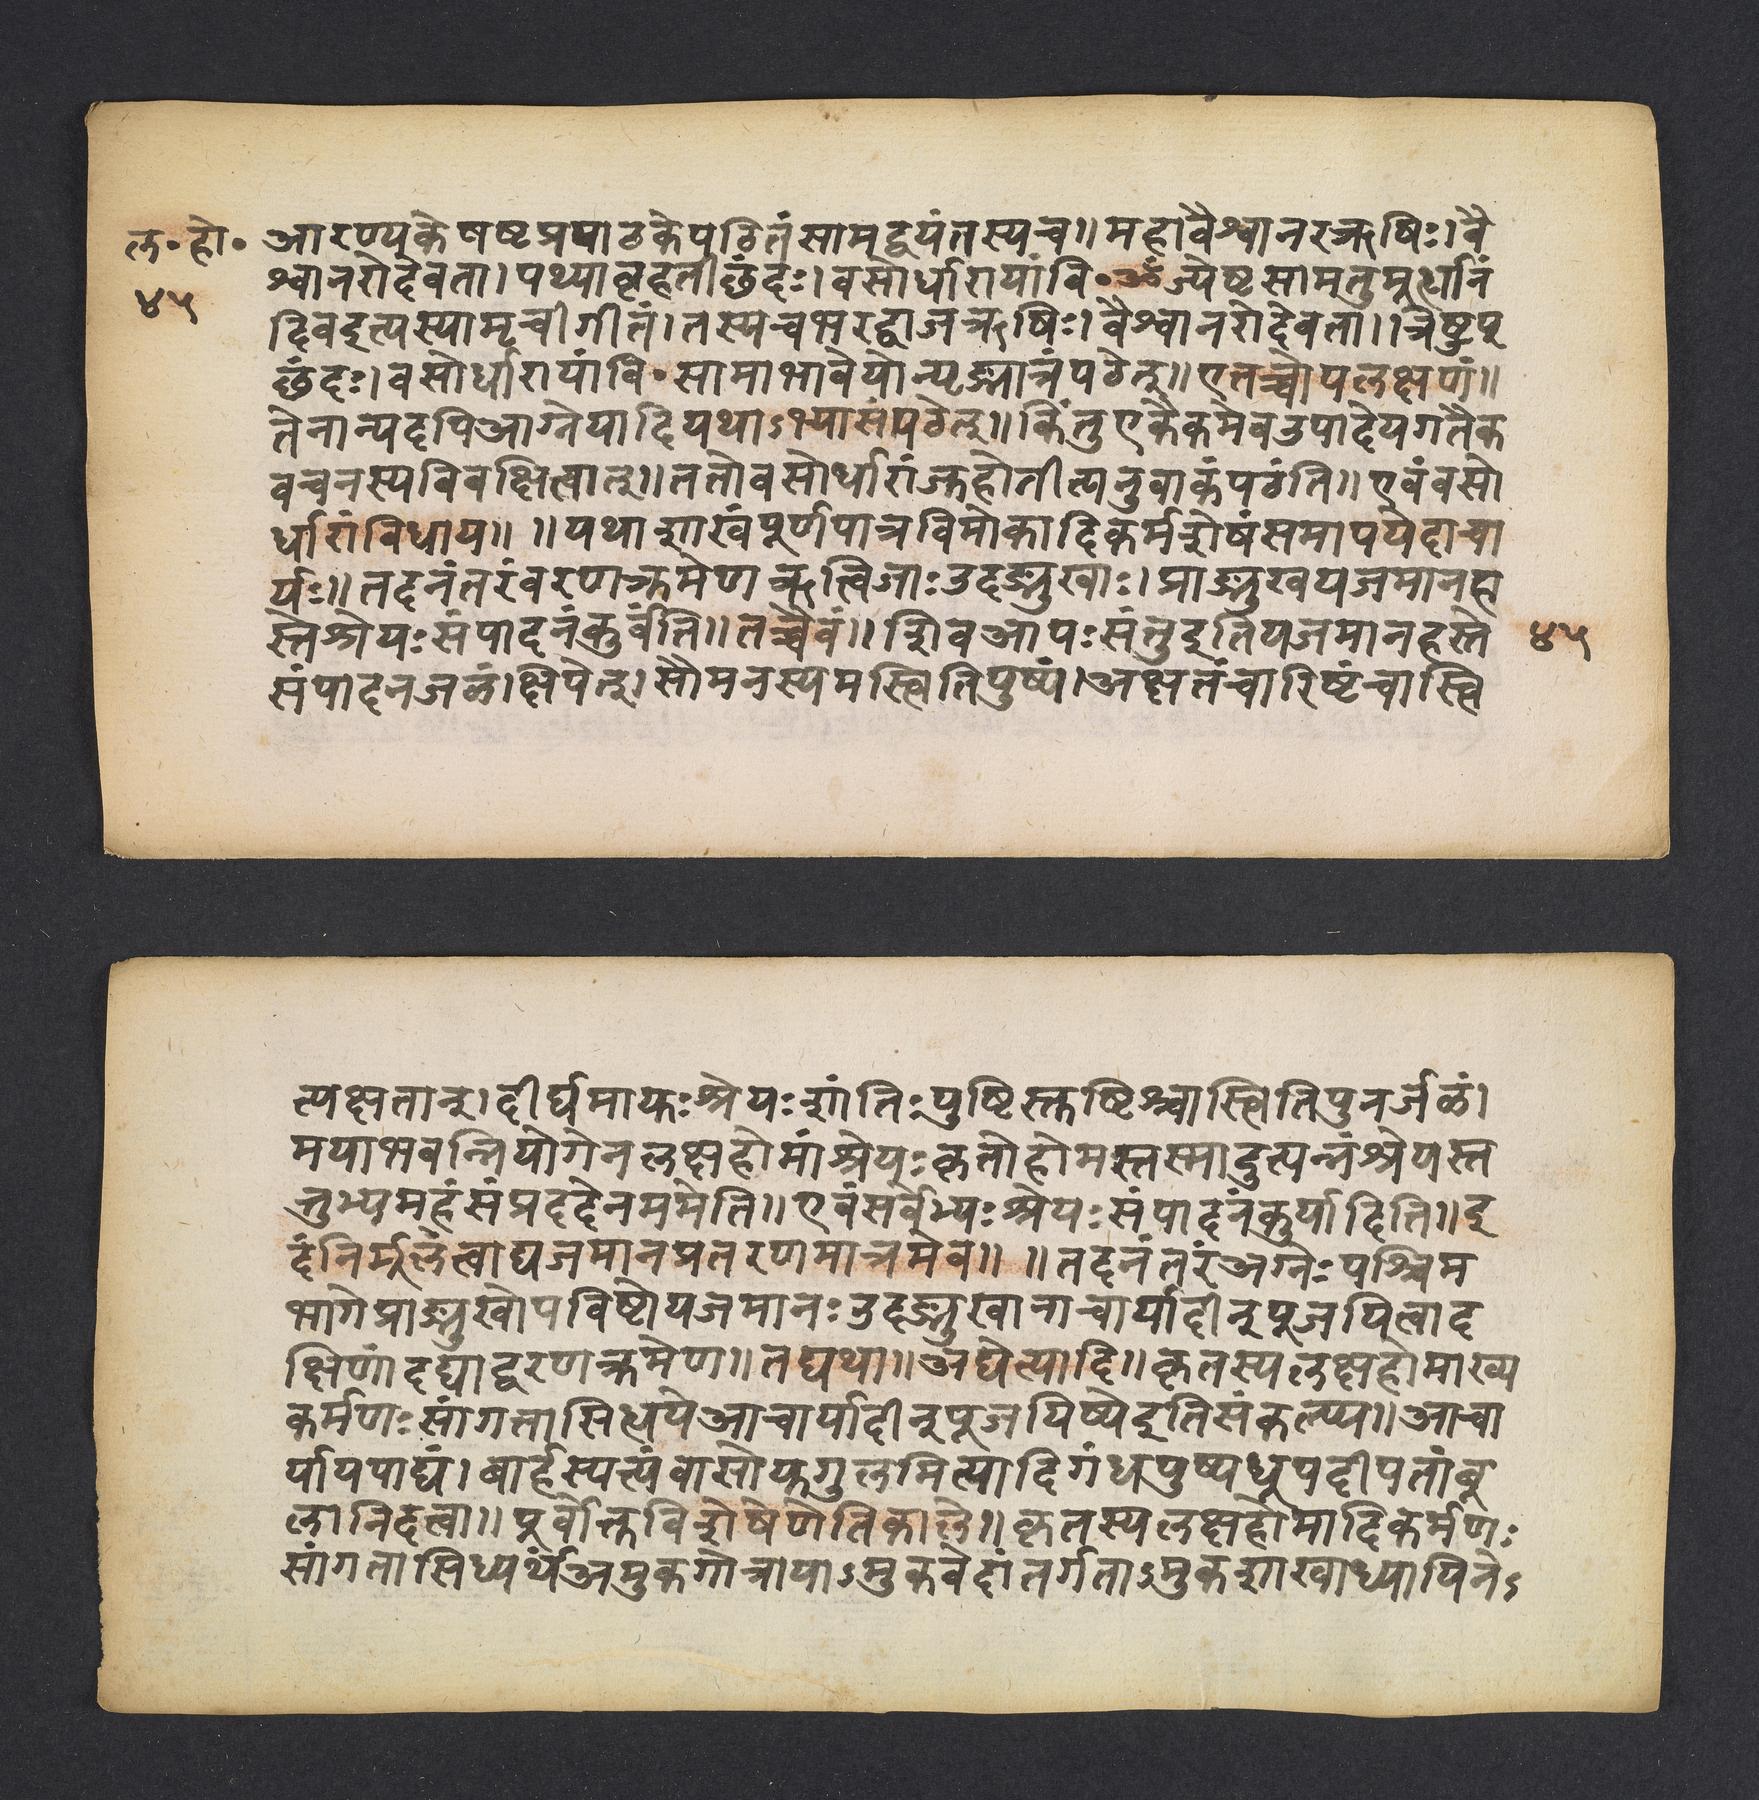 ल॰हो॰ आरण्यकेषष्टप्रपाठकेपठितंसामद्वयंतस्यच॥महावैश्वानरऋषिः।वै
४५ श्वानरोदेवता।पथ्याबृहतीछंदः।वसोर्धारायांवि॰ॐज्येष्टसामतुमूर्धानं
दिवइत्यस्यामृचीगीतं।तस्यचभरद्वाजऋषिः।वैश्वानरोदेवता।।त्रिष्टुप्
छंदः।वसोर्धारायांवि॰सामाभावेयोन्यृङ्मात्रंपठेत्॥एतच्चोपलक्षणं॥
तेनान्यदपिआग्नेयादियथाऽभ्यासंपठेत्॥किंतुएकैकमेवउपादेयगतैक
वचनस्यविवक्षित्वात्॥ततोवसोर्धारांजुहोतीत्यनुवाकंपठंति॥एवंवसो
र्धारांविधाय॥ ॥यथाशाखंपूर्णपात्रविमोकादिकर्मशेषंसमापयेदाचा
र्यः॥तदनंतरंवरणक्रमेणऋत्विजाःउदङ्मुखाः।प्राङ्मुखयजमानह
स्तेश्रेयःसंपादनंकुर्वंति॥तच्चैवं॥शिवआपःसंतुइतियजमानहस्ते ४५
संपादनजळं।क्षिपेत्।सौमनस्यमस्त्वितिपुष्पं।अक्षतंचारिष्टंचास्त्वि
त्यक्षतान्।दीर्घमायुःश्रेयःशांतिःपुष्टिस्तुष्टिश्चास्त्वितिपुनर्जळं।
मयाभवन्नियोगेनलक्षहोमांश्रेयुःकृतोहोमस्तस्मादुत्पन्नंश्रेयस्त
त्तुभ्यमहंसंप्रददेनममेति॥एवंसर्वेभ्यःश्रेयःसंपादनंकुर्यादिति॥इ
दंनिर्मूलंत्वाद्यजमानप्रतरणमात्रमेव॥ ॥तदनंतरंअग्नेःपश्चिम
भागेप्राङ्मुखोपविष्टोयजमानःउदङ्मुखानाचार्यादीन्पूजयित्वाद
क्षिणांदद्याद्वरणक्रमेण॥तद्यथा॥अद्येत्यादि॥कृतस्यलक्षहोमाख्य
कर्मणःसांगतासिध्यर्थंआचार्यादीन्पूजयिष्येइतिसंकल्प्य॥आचा
र्यायपाद्यं।बार्हस्पत्यंवासोयुगुलमित्यादिगंधपुष्पधूपदीपतांबू
लानिदत्वा॥पूर्वोक्तविशेषेणेतिकाले॥कृतस्यलक्षहोमादिकर्मणः
सांगतासिध्यर्थंअमुकगोत्रायाऽमुकवेदांतर्गताऽमुकशाखाध्यायिनेऽ